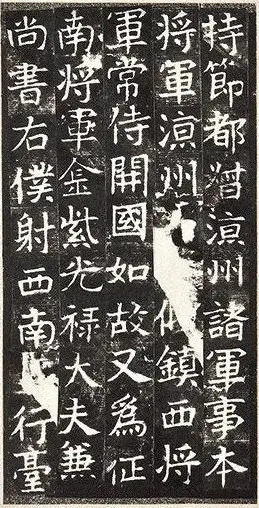 持節都督涼州諸軍事本
將軍涼州鎮西將
軍常侍開國如故又為征
南將軍金紫光禄大夫兼
尚書右僕射西南行臺